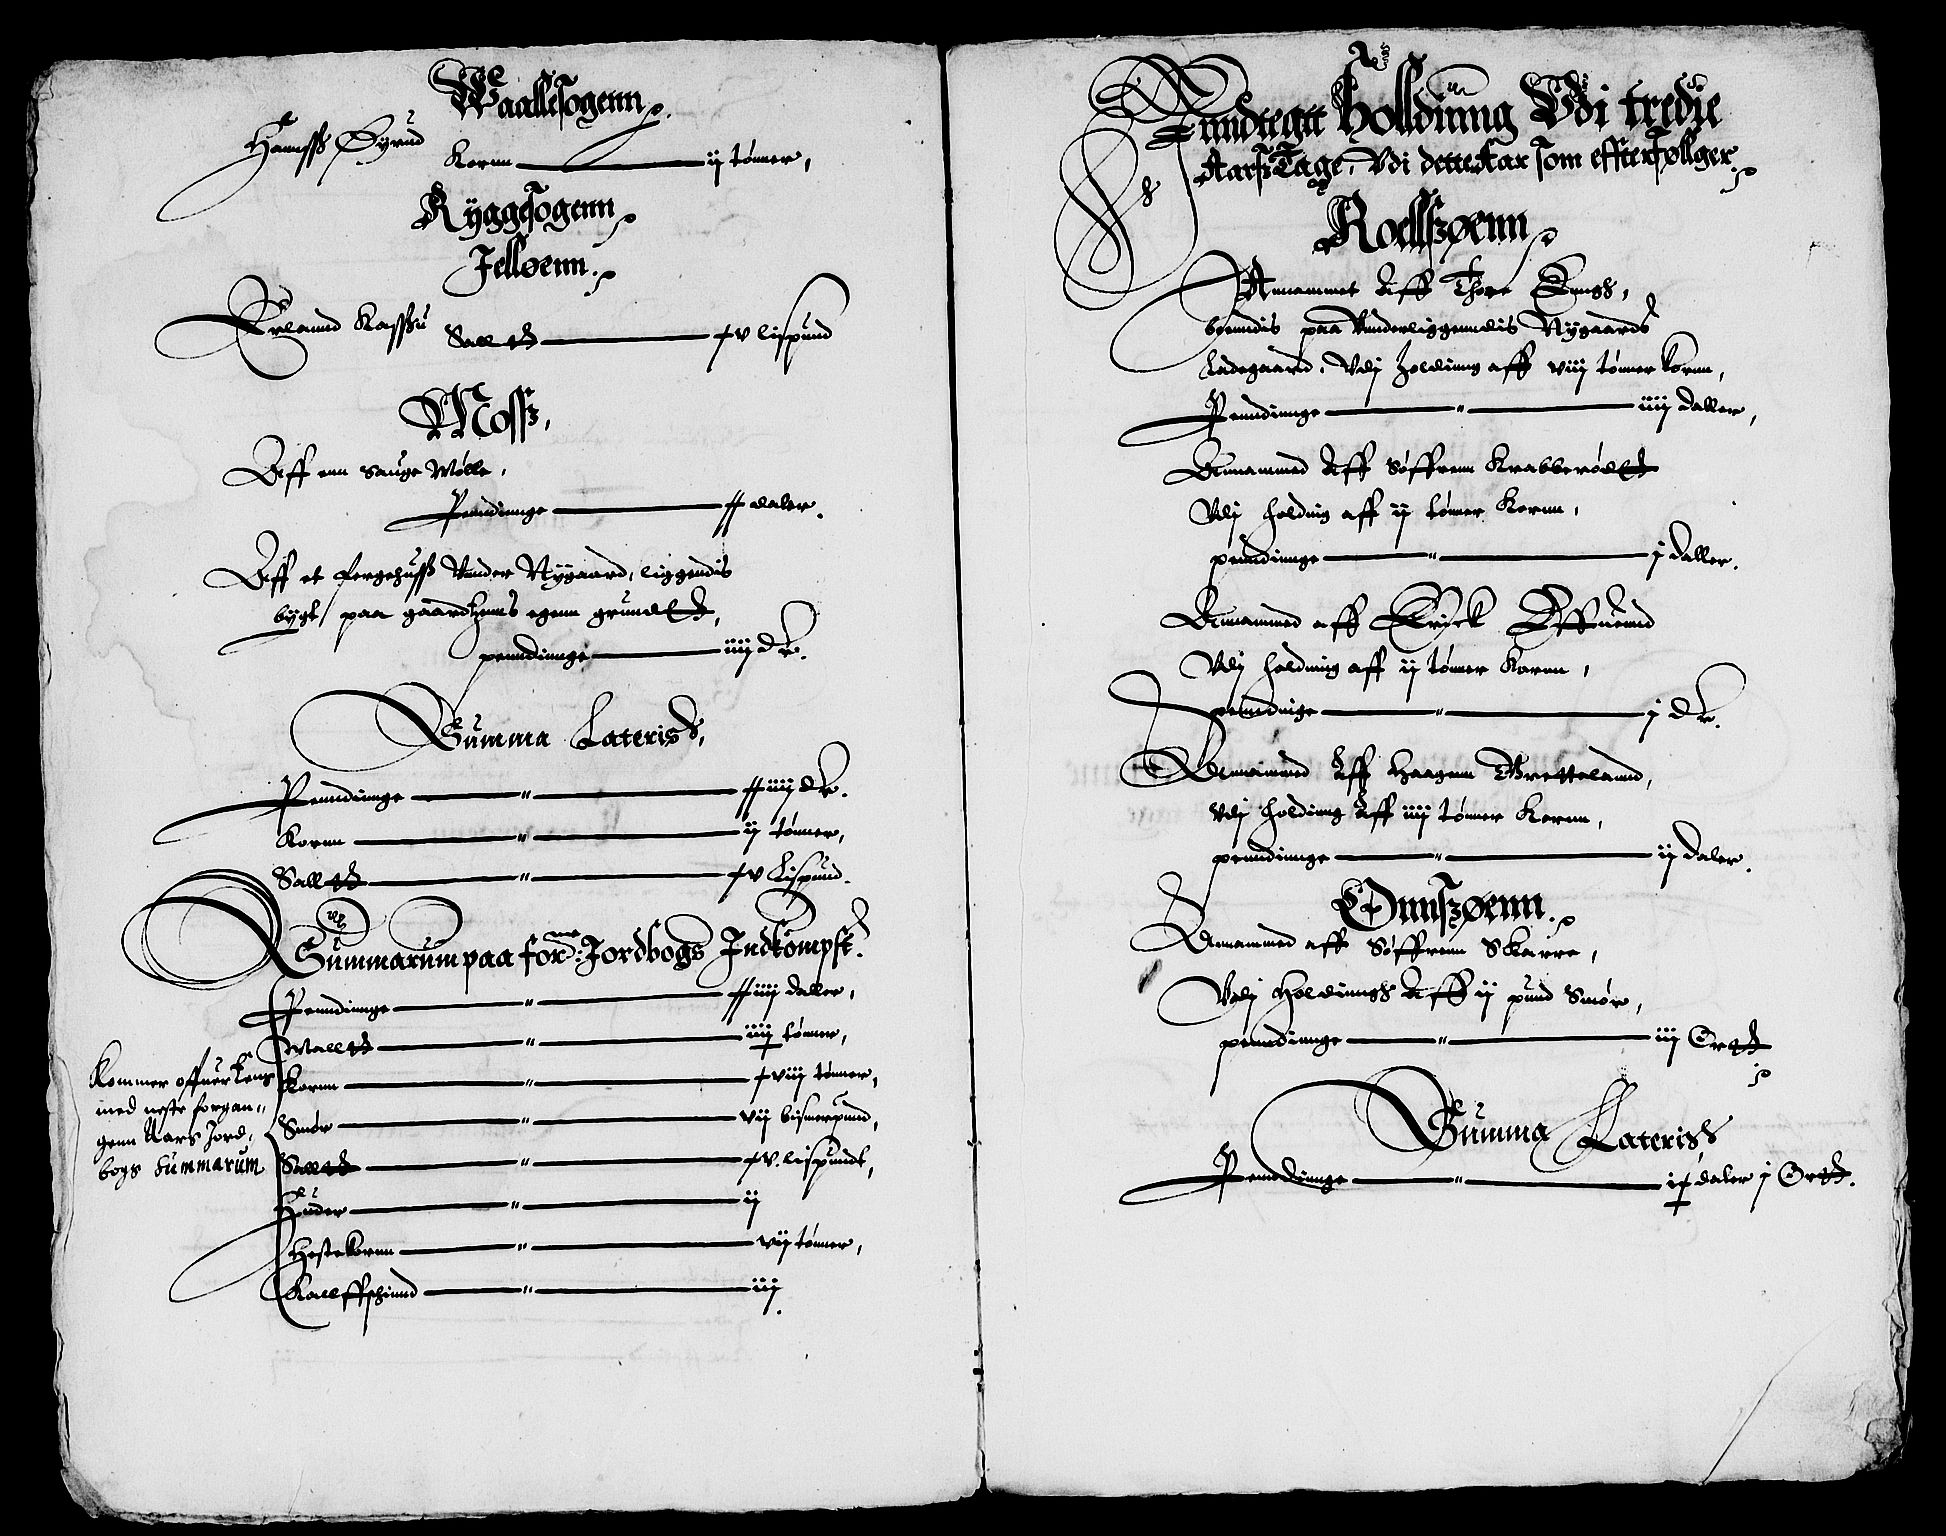 Waallesogenn
Hannsß Dyrud
Kornn — ij tønner,
Ryggesogenn
Jelløenn.
Erlannd Kasssu
Salltt — xv lispund
Moss,
Aff enn Sauge Mølle,
Penndinnge — xx daler.
Aff et fergehusß Unnder Nygaard, liggendis
bygt paa gaardhenns egenn grundt,
penndinnge — iiij dlr.
Summa Lateris,
Penndinnge — „ — xxiiij dlr.
Kornn — „ — ij tønner,
Salltt — „ — xv Lispund.
Summarum paa forne: Jordbogs Indkompst.
Penndinnge — „ — xxiiij daller,
Malltt — „ — iiij tønner,
Kornn — „ — xviij tønner,
Smør — „ — vij bismerpund,
Salltt — „ — xv. lispundt,
Huder — „ — ij
Hestekornn — „ — vij tønner,
Kallffschinnd — „ — iij
Kommer offuer Eens
med neste forgan„
genn Aars Jord„
bogs Summarum
Anndtegtt Holldinng Udi tredie
Aarß Tage, Udi dette Aar som effterføllger
Roellßøenn
Annammet Aff Thore Enngh,
boenndis paa Unnderliggenndis Nygaards
Ladegaard, Udj Holdinng aff viij tønner kornn,
Penndinnge — „ — iiij daller,
Annammed Aff Søffrenn Krabberødt
Udj holding aff ij tønner Kornn,
penndinnge — „ — j daller.
Annammed aff Erick Effuennd
Udj holdinng aff ij tønner Kornn,
penndinge — „ — j dlr.
Annammed Aff Haagenn Grettelannd,
Udj holdinng Aff iiij tønner Kornn,
penndinnge — „ — ij daler.
Onnsßøenn.
Annammed aff Søffrenn Skarre,
Udj Holdinngh Aff ij pund Smør,
penndinnge — „ — iij Ortt
Summa Lateris
Penndinnge — „ — ix daler j Ortt.